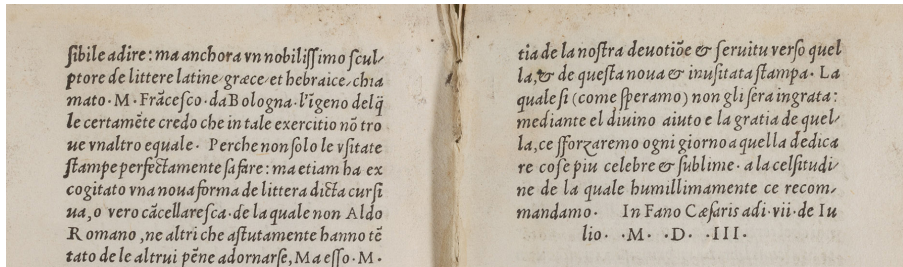 ſibile adire: ma anchora vn nobiliſſimo ſcul/
ptore de littere latine, græce et hebraice, chia
mato · M · Frãceſco · da Bologna · l'īgeno delq̃
le certamẽte credo che in tale exercitio nõ tro
ue vnaltro equale · Perche non ſolo le vſitate
ſtampe perfectamente ſa fare: ma etiam ha ex
cogitato vna noua forma de littera dicta curſi
ua, o vero cãcellareſca · de la quale non Aldo
Romano, ne altri che aſtutamente hanno tẽ
tato de le altrui pẽne adornarſe, Ma eſſo · M ·
tia de la noſtra deuotiõe & ſeruitu verſo quel
la, & de queſta noua & inuſitata ſtampa · La
quale ſi (come ſperamo) non gli ſera ingrata:
mediante el diuino aiuto e la gratia de quel/
la, ce sforzaremo ogni giorno a quella dedica
re coſe piu celebre & ſublime · a la celſitudi/
ne de la quale humillimamente ce recom/
mandamo · In Fano Cæſaris adi · vii · de Iu
lio · · M · · D · · III ·